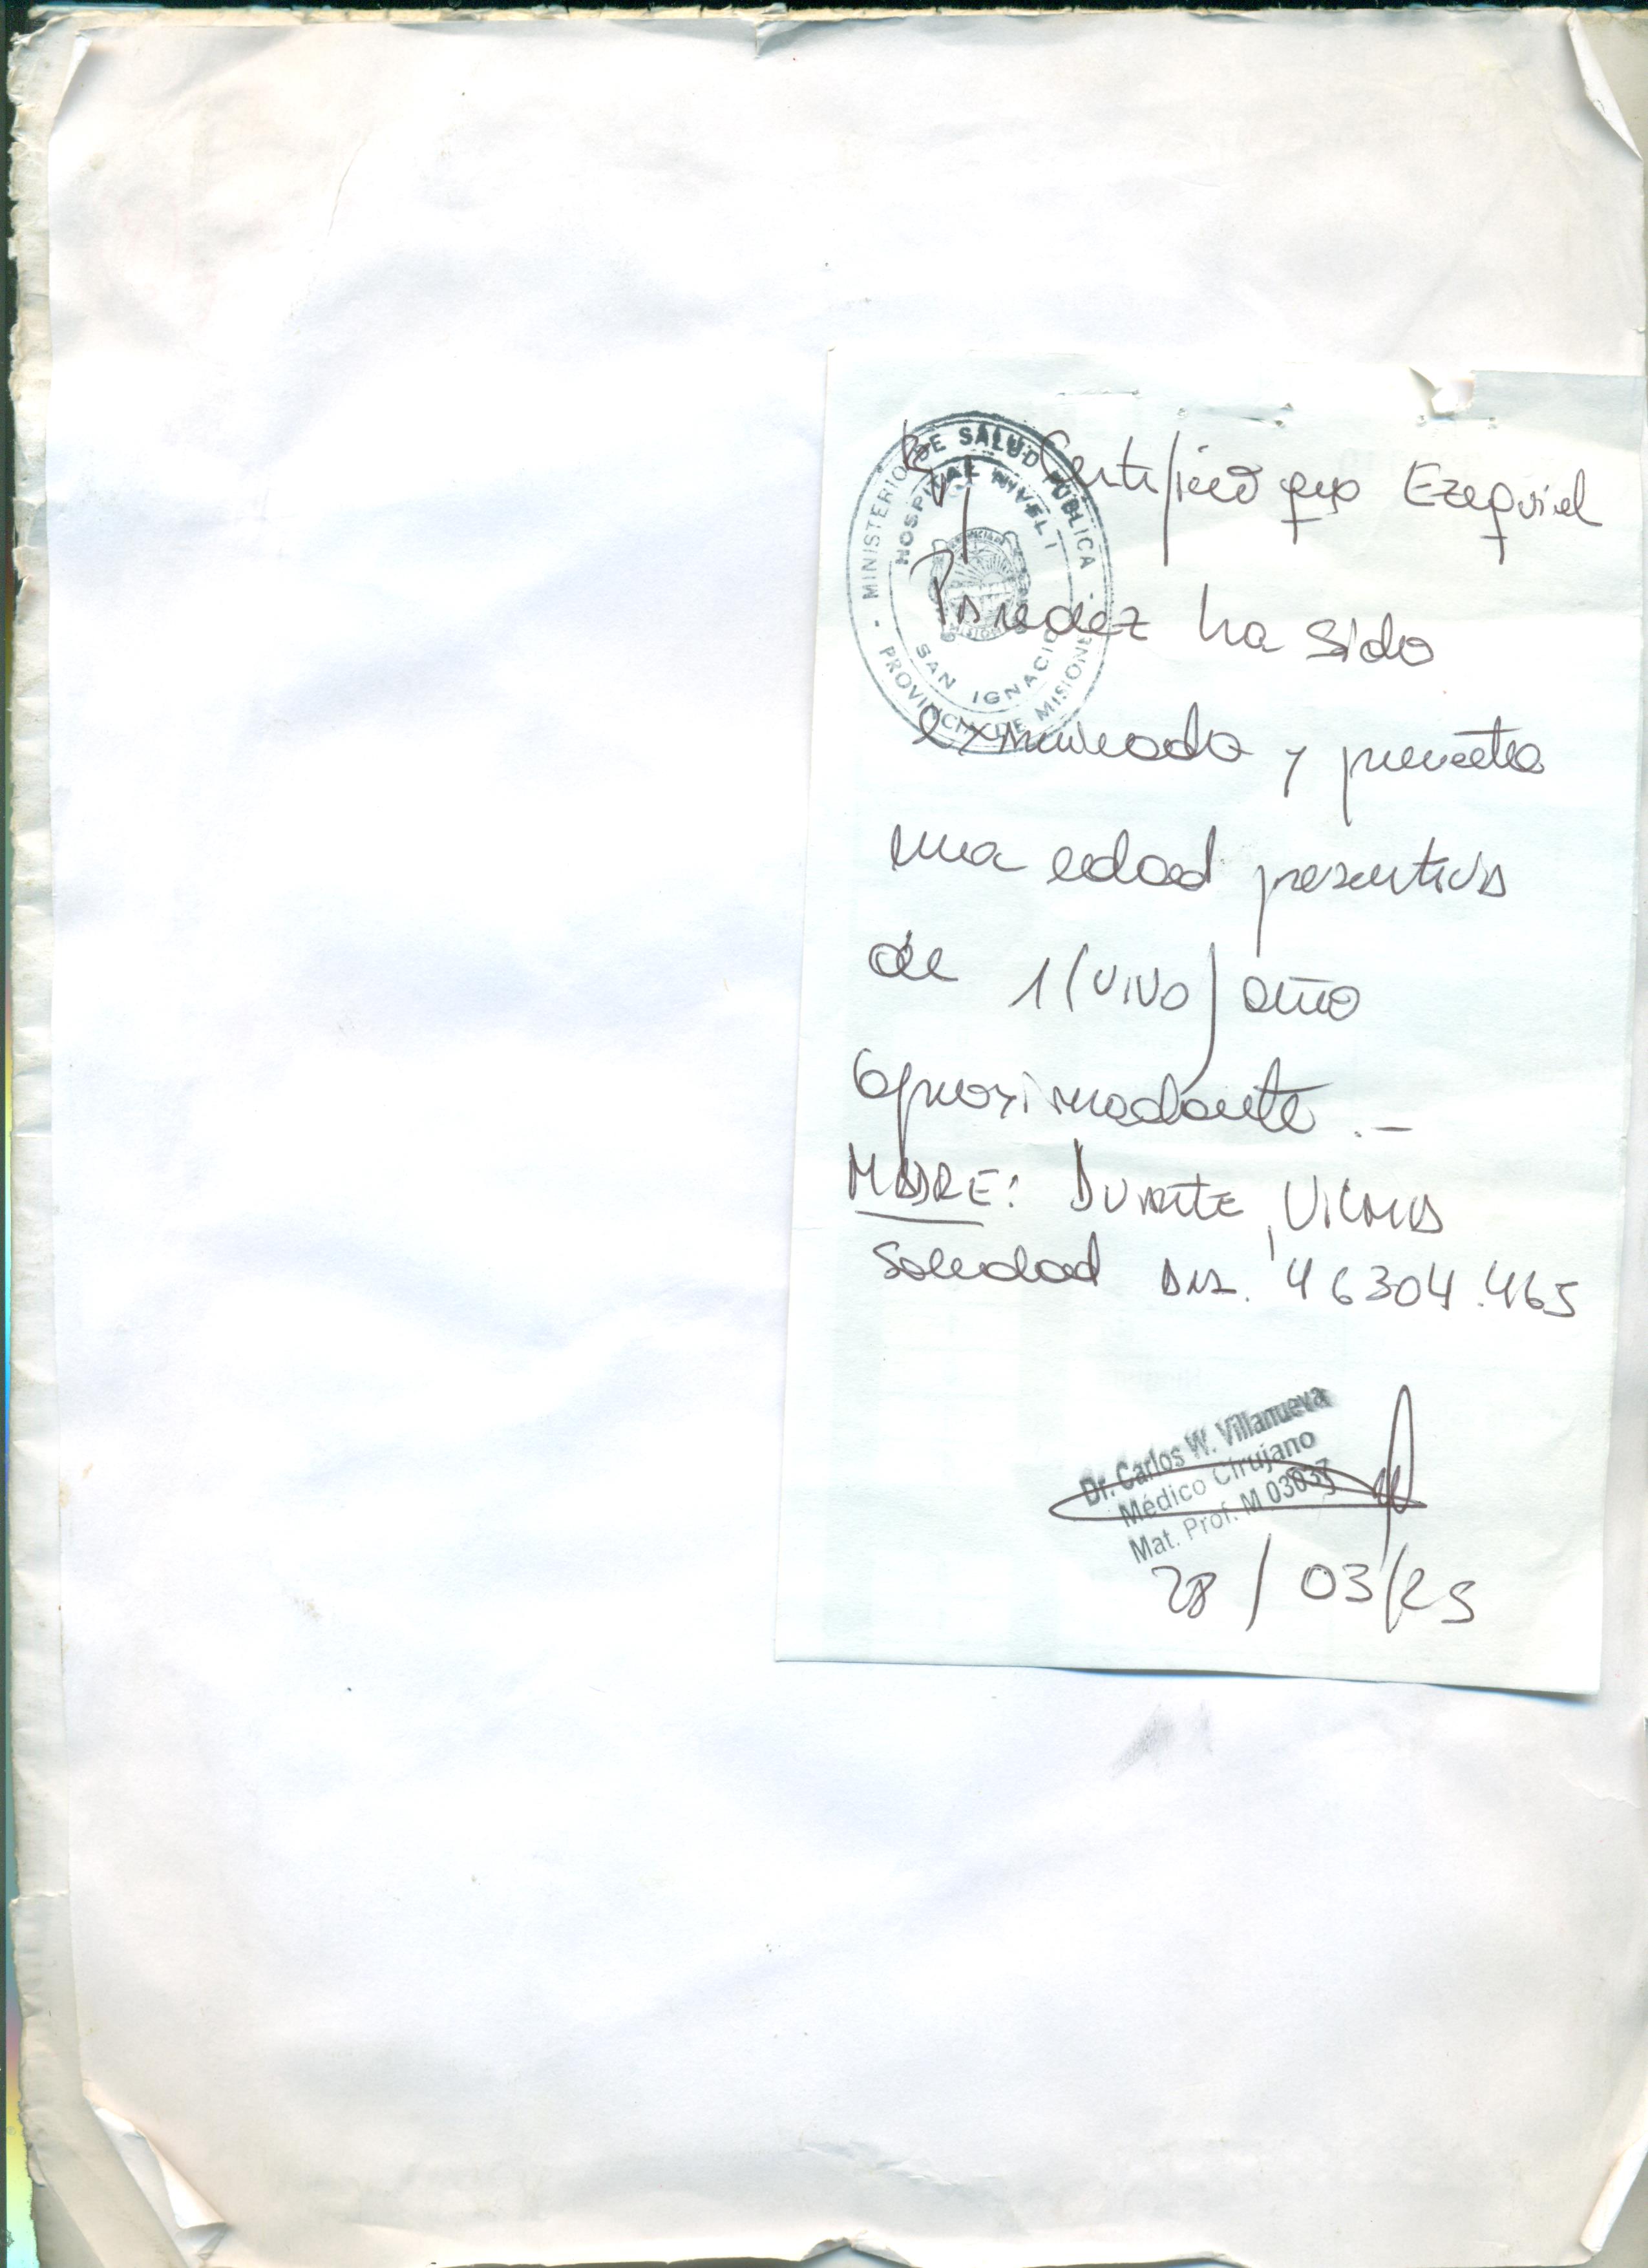 MINISTERIO DE SALUD PUBLICA - PROVINCIA DE MISIONES -
HOSPITAL NIVEL I
SAN IGNACIO
Certifico que Ezequiel
Paredez ha sido
examinado y presenta
una edad presuntiva
de 1 (UNO) año
aproximadante.-
MADRE: DUARTE, VILMA
Soledad DNI. 46304.465
Dr. Carlos W. Villanueva
Médico Cirujano
Mat. Prof. M 03037
28/03/25